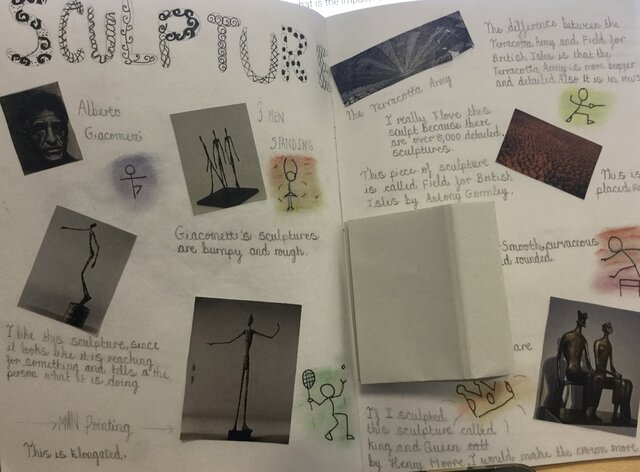 SCULPTURE
Alberto
Giacometti
3 MEN
STANDING
Giacometti's sculptures
are bumpy and rough.
I like this sculpture, since
it looks like it is reaching
for something and tells a the
person what it is doing
MAN Pointing
This is Elongated.
hat is the impa
The difference between the
Terracotta Army and Field for
British Isles is that the
Terracotta Army is more bigger
and detailed. Also it is in
The Terracotta Army
I really love this
sculpt because there
are over 8,000 detailed
sculptures.
This piece of sculpture
is called Field for British
Isles by Antony Gormley.
This is
placed
Smooth, curvaceous
d rounded.
are
If I sculpted
this sculpture called
King and Queen
by Henry Moore, I would make the crown more